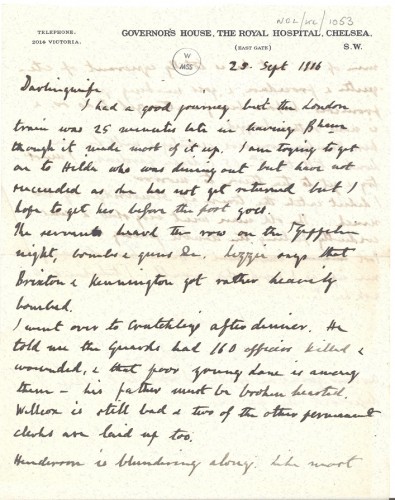 NOL/VL/1053
TELEPHONE.
2016 VICTORIA.
GOVERNOR'S HOUSE, THE ROYAL HOSPITAL, CHELSEA.
(EAST GATE)
S.W.
W
MSS
25 Sept 1916
Darlingwife
I had a good journey but the London
train was 25 minutes late in leaving B'ham
though it made most of it up. I am trying to get
on to Hilda who was dining out but have not
succeeded as she has not yet returned but I
hope to get her before the post goes.
The servants heard the row on the Zeppelin
night, bombs & guns &c. Lizzie says that
Brixton & Kennington got rather heavily
bombed.
I went over to Crutchley's after dinner. He
told me the Guards had 160 officers killed &
wounded, & that poor young Lane is among
them – his father must be broken hearted.
Willcox is still bad & two of the other permanent
clerks are laid up too.
Henderson is blundering along. Like most